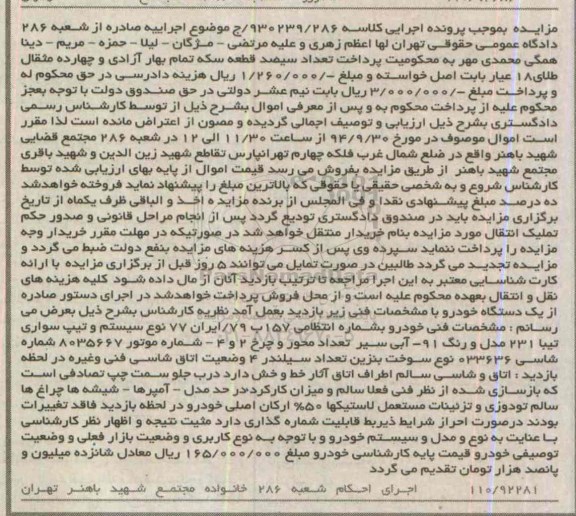 مزایـده بموجب پرونده اجرایی کلاسـه ۹۳۰۲۳۹/۲۸۶/ج موضوع اجراییه صادره از شـعبه ۲۸۶
دادگاه عمومـی حقوقـی تهران لها اعظم زهری و علیه مرتضی – مـژگان – لیلا – حمزه – مریم – دینا
همگی محمدی مهر به محکومیت پرداخت تعداد سیصد قطعه سکه تمام بهار آزادی و چهارده مثقال
طلای۱۸ عیار بابت اصل خواسـته و مبلغ -/۱/۲۶۰/۰۰۰ ریال هزینه دادرسـی در حق محکوم له
و پرداخـت مبلغ -/۳/۰۰۰/۰۰۰ ریال بابت نیم عشـر دولتی در حق صنـدوق دولت با توجه بعجز
محکوم علیه از پرداخت محکوم به و پس از معرفی اموال بشـرح ذیل از توسـط کارشـناس رسـمی
دادگسـتری بشـرح ذیل ارزیابی و توصیف اجمالی گردیده و مصون از اعتراض مانده است لذا مقرر
اسـت اموال موصوف در مورخ ۹۴/۹/۳۰ از سـاعت ۱۱/۳۰ الی ۱۲ در شـعبه ۲۸۶ مجتمع قضایی
شهید باهنر واقع در ضلع شمال غرب فلکه چهارم تهرانپارس تقاطع شهید زین الدین و شهید باقری
مجتمع شـهید باهنر از طریق مزایده بفروش می رسد قیمت اموال از پایه بهای ارزیابی شده توسط
کارشناس شروع و به شخصی حقیقی یا حقوقی که بالاترین مبلغ را پیشنهاد نماید فروخته خواهدشد
ده درصـد مبلغ پیشـنهادی نقدا و فـی المجلس از برنده مزایده اخـذ و الباقی ظرف یکماه از تاریخ
برگزاری مزایده باید در صندوق دادگستری تودیع گردد پس از انجام مراحل قانونی و صدور حکم
تملیک انتقال مورد مزایده بنام خریدار منتقل خواهد شد در صورتیکه در مهلت مقرر خریدار وجه
مزایده را پرداخت ننماید سـپرده وی پس از کسـر هزینه های مزایده بنفع دولت ضبط می گردد و
مزایـده تجدیـد می گردد طالبین در صورت تمایل می توانند ۵ روز قبل از برگزاری مزایده با ارائه
کارت شناسـایی معتبر به این اجرا مراجعه تا ترتیب بازدید آنان از مال داده شـود کلیه هزینه های
نقل و انتقال بعهده محکوم علیه است و از محل فروش پرداخت خواهدشد در اجرای دستور صادره
از یک دستگاه خودرو با مشخصات فنی زیر بازدید بعمل آمد نظریه کارشناس بشرح ذیل بعرض می
رسـانم : مشـخصات فنی خودرو بشـماره انتظامی ۱۵۷ ب ۷۹/ایران ۷۷ نوع سیستم و تیپ سواری
تیبا ۲۳۱ مدل و رنگ ۹۱- آبی سـیر تعداد محور و چرخ ۲ و ۴ – شـماره موتور ۸۰۳۵۶۶۷ شماره
شاسـی ۰۳۳۶۳۶ نوع سـوخت بنزین تعداد سـیلندر ۴ وضعیت اتاق شاسـی فنی وغیره در لحظه
بازدید : اتاق و شاسـی سـالم اطراف اتاق آثار خط و خش دارد درب جلو سـمت چپ تصادفی اسـت
که بازسـازی شـده از نظر فنی فعلا سالم و میزان کارکرددر حد مدل – آمپرها – شیشه ها چراغ ها
سالم تودوزی و تزئینات مستعمل لاستیکها ۵۰% ارکان اصلی خودرو در لحظه بازدید فاقد تغییرات
بودند درصورت احراز شرایط ذیربط قابلیت شماره گذاری دارد مثبت نتیجه و اظهار نظر کارشناسی
بـا عنایت به نوع و مدل و سیسـتم خودرو و با توجه بـه نوع کاربری و وضعیت بازار فعلی و وضعیت
توصیفی خودرو قیمت پایه کارشناسی خودرو مبلغ ۱۶۵/۰۰۰/۰۰۰ ریال معادل شانزده میلیون و
پانصد هزار تومان تقدیم می گردد
۱۱۰/۹۲۲۸۱ اجـرای احـکام شـعبه ۲۸۶ خانـواده مجتمـع شـهید باهنـر تهـران